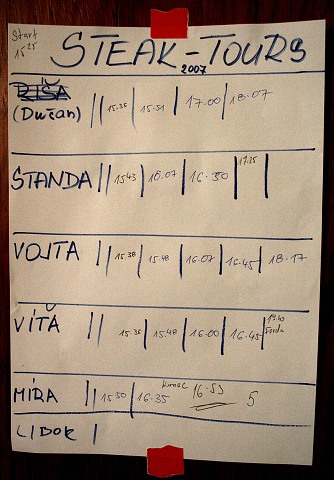 Start
15 25
STEAK-TOURS
2007
RIŠA
(Dučan) || 15.36 | 15.51 | 17.00 | 18.07
STANDA || 15.43 | 16.07 | 16.30 | 17.25 |
VOJTA || 15.38 | 15.48 | 16.07 | 16.45 | 18.17
VÍŤA || 15.36 | 15.48 | 16.00 | 16.45 |
MÍRA || 15.50 | 16.35 konec 16.53 5
LIBOR |